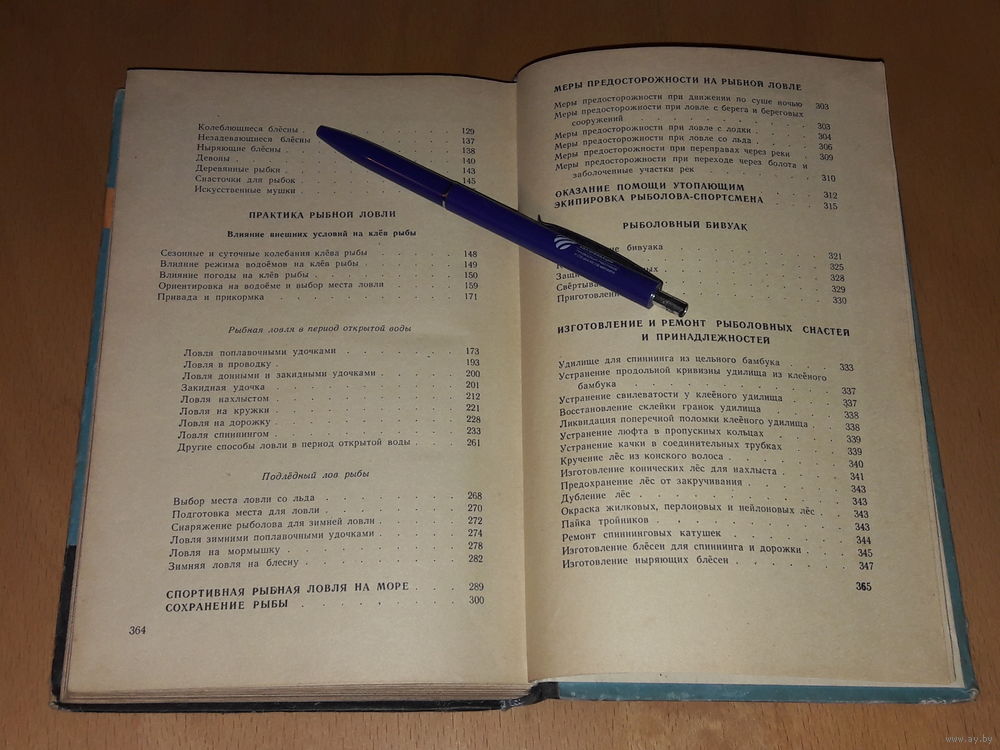 Колеблющиеся блёсны . . . . . . . . 129
Незадевающиеся блёсны . . . . . 137
Ныряющие блёсны . . . . . . . 138
Девоны . . . . . . . . . . . 140
Деревянные рыбки . . . . . . . . 143
Снасточки для рыбок . . . . . . . 145
Искусственные мушки . . . . . . .
ПРАКТИКА РЫБНОЙ ЛОВЛИ
Влияние внешних условий на клёв рыбы
Сезонные и суточные колебания клёва рыбы . . . . . 148
Влияние режима водоёмов на клёв рыбы . . . . . . 149
Влияние погоды на клёв рыбы . . . . . . . . 150
Ориентировка на водоёме и выбор места ловли . . . . 159
Привада и прикормка . . . . . . . . . . 171
Рыбная ловля в период открытой воды
Ловля поплавочными удочками . . . . . . . 173
Ловля в проводку . . . . . . . . . . . 193
Ловля донными и закидными удочками . . . . . 200
Закидная удочка . . . . . . . . . . . 201
Ловля нахлыстом . . . . . . . . . . . 212
Ловля на кружки . . . . . . . . . . . 221
Ловля на дорожку . . . . . . . . . . . 228
Ловля спиннингом . . . . . . . . . . . 233
Другие способы ловли в период открытой воды . . . 261
Подлёдный лов рыбы
Выбор места ловли со льда . . . . . . . . 268
Подготовка места для ловли . . . . . . . . 270
Снаряжение рыболова для зимней ловли . . . . . 272
Ловля зимними поплавочными удочками . . . . . 274
Ловля на мормышку . . . . . . . . . . 278
Зимняя ловля на блесну . . . . . . . . . 282
СПОРТИВНАЯ РЫБНАЯ ЛОВЛЯ НА МОРЕ . . . . 289
СОХРАНЕНИЕ РЫБЫ . . . . . . . . . 300
364
МЕРЫ ПРЕДОСТОРОЖНОСТИ НА РЫБНОЙ ЛОВЛЕ
Меры предосторожности при движении по суше ночью 303
Меры предосторожности при ловле с берега и береговых
сооружений . . . . . . . . . . . 303
Меры предосторожности при ловле с лодки . . . . 304
Меры предосторожности при ловле со льда . . . . 306
Меры предосторожности при переправах через реки . . 309
Меры предосторожности при переходе через болота и
заболоченные участки рек . . . . . . . 310
ОКАЗАНИЕ ПОМОЩИ УТОПАЮЩИМ . . . . . 312
ЭКИПИРОВКА РЫБОЛОВА-СПОРТСМЕНА . . . . 315
РЫБОЛОВНЫЙ БИВУАК
бивуака . . . . . . . . 321
325
328
329
Приготовлени 330
ИЗГОТОВЛЕНИЕ И РЕМОНТ РЫБОЛОВНЫХ СНАСТЕЙ
И ПРИНАДЛЕЖНОСТЕЙ
Удилище для спиннинга из цельного бамбука . . . . 333
Устранение продольной кривизны удилища из клеёного
бамбука . . . . . . . . . . . . 337
Устранение свилеватости у клеёного удилища . . . . 337
Восстановление склейки гранок удилища . . . . . 338
Ликвидация поперечной поломки клеёного удилища . . 338
Устранение люфта в пропускных кольцах . . . . . 339
Устранение качки в соединительных трубках . . . . 339
Кручение лёс из конского волоса . . . . . . . 340
Изготовление конических лёс для нахлыста . . . . 341
Предохранение лёс от закручивания . . . . . . 343
Дубление лёс . . . . . . . . . . . . 343
Окраска жилковых, перлоновых и нейлоновых лёс . . 343
Пайка тройников . . . . . . . . . . . 343
Ремонт спиннинговых катушек . . . . . . . 344
Изготовление блёсен для спиннинга и дорожки . . . 345
Изготовление ныряющих блёсен . . . . . . . 347
365
www.ay.by